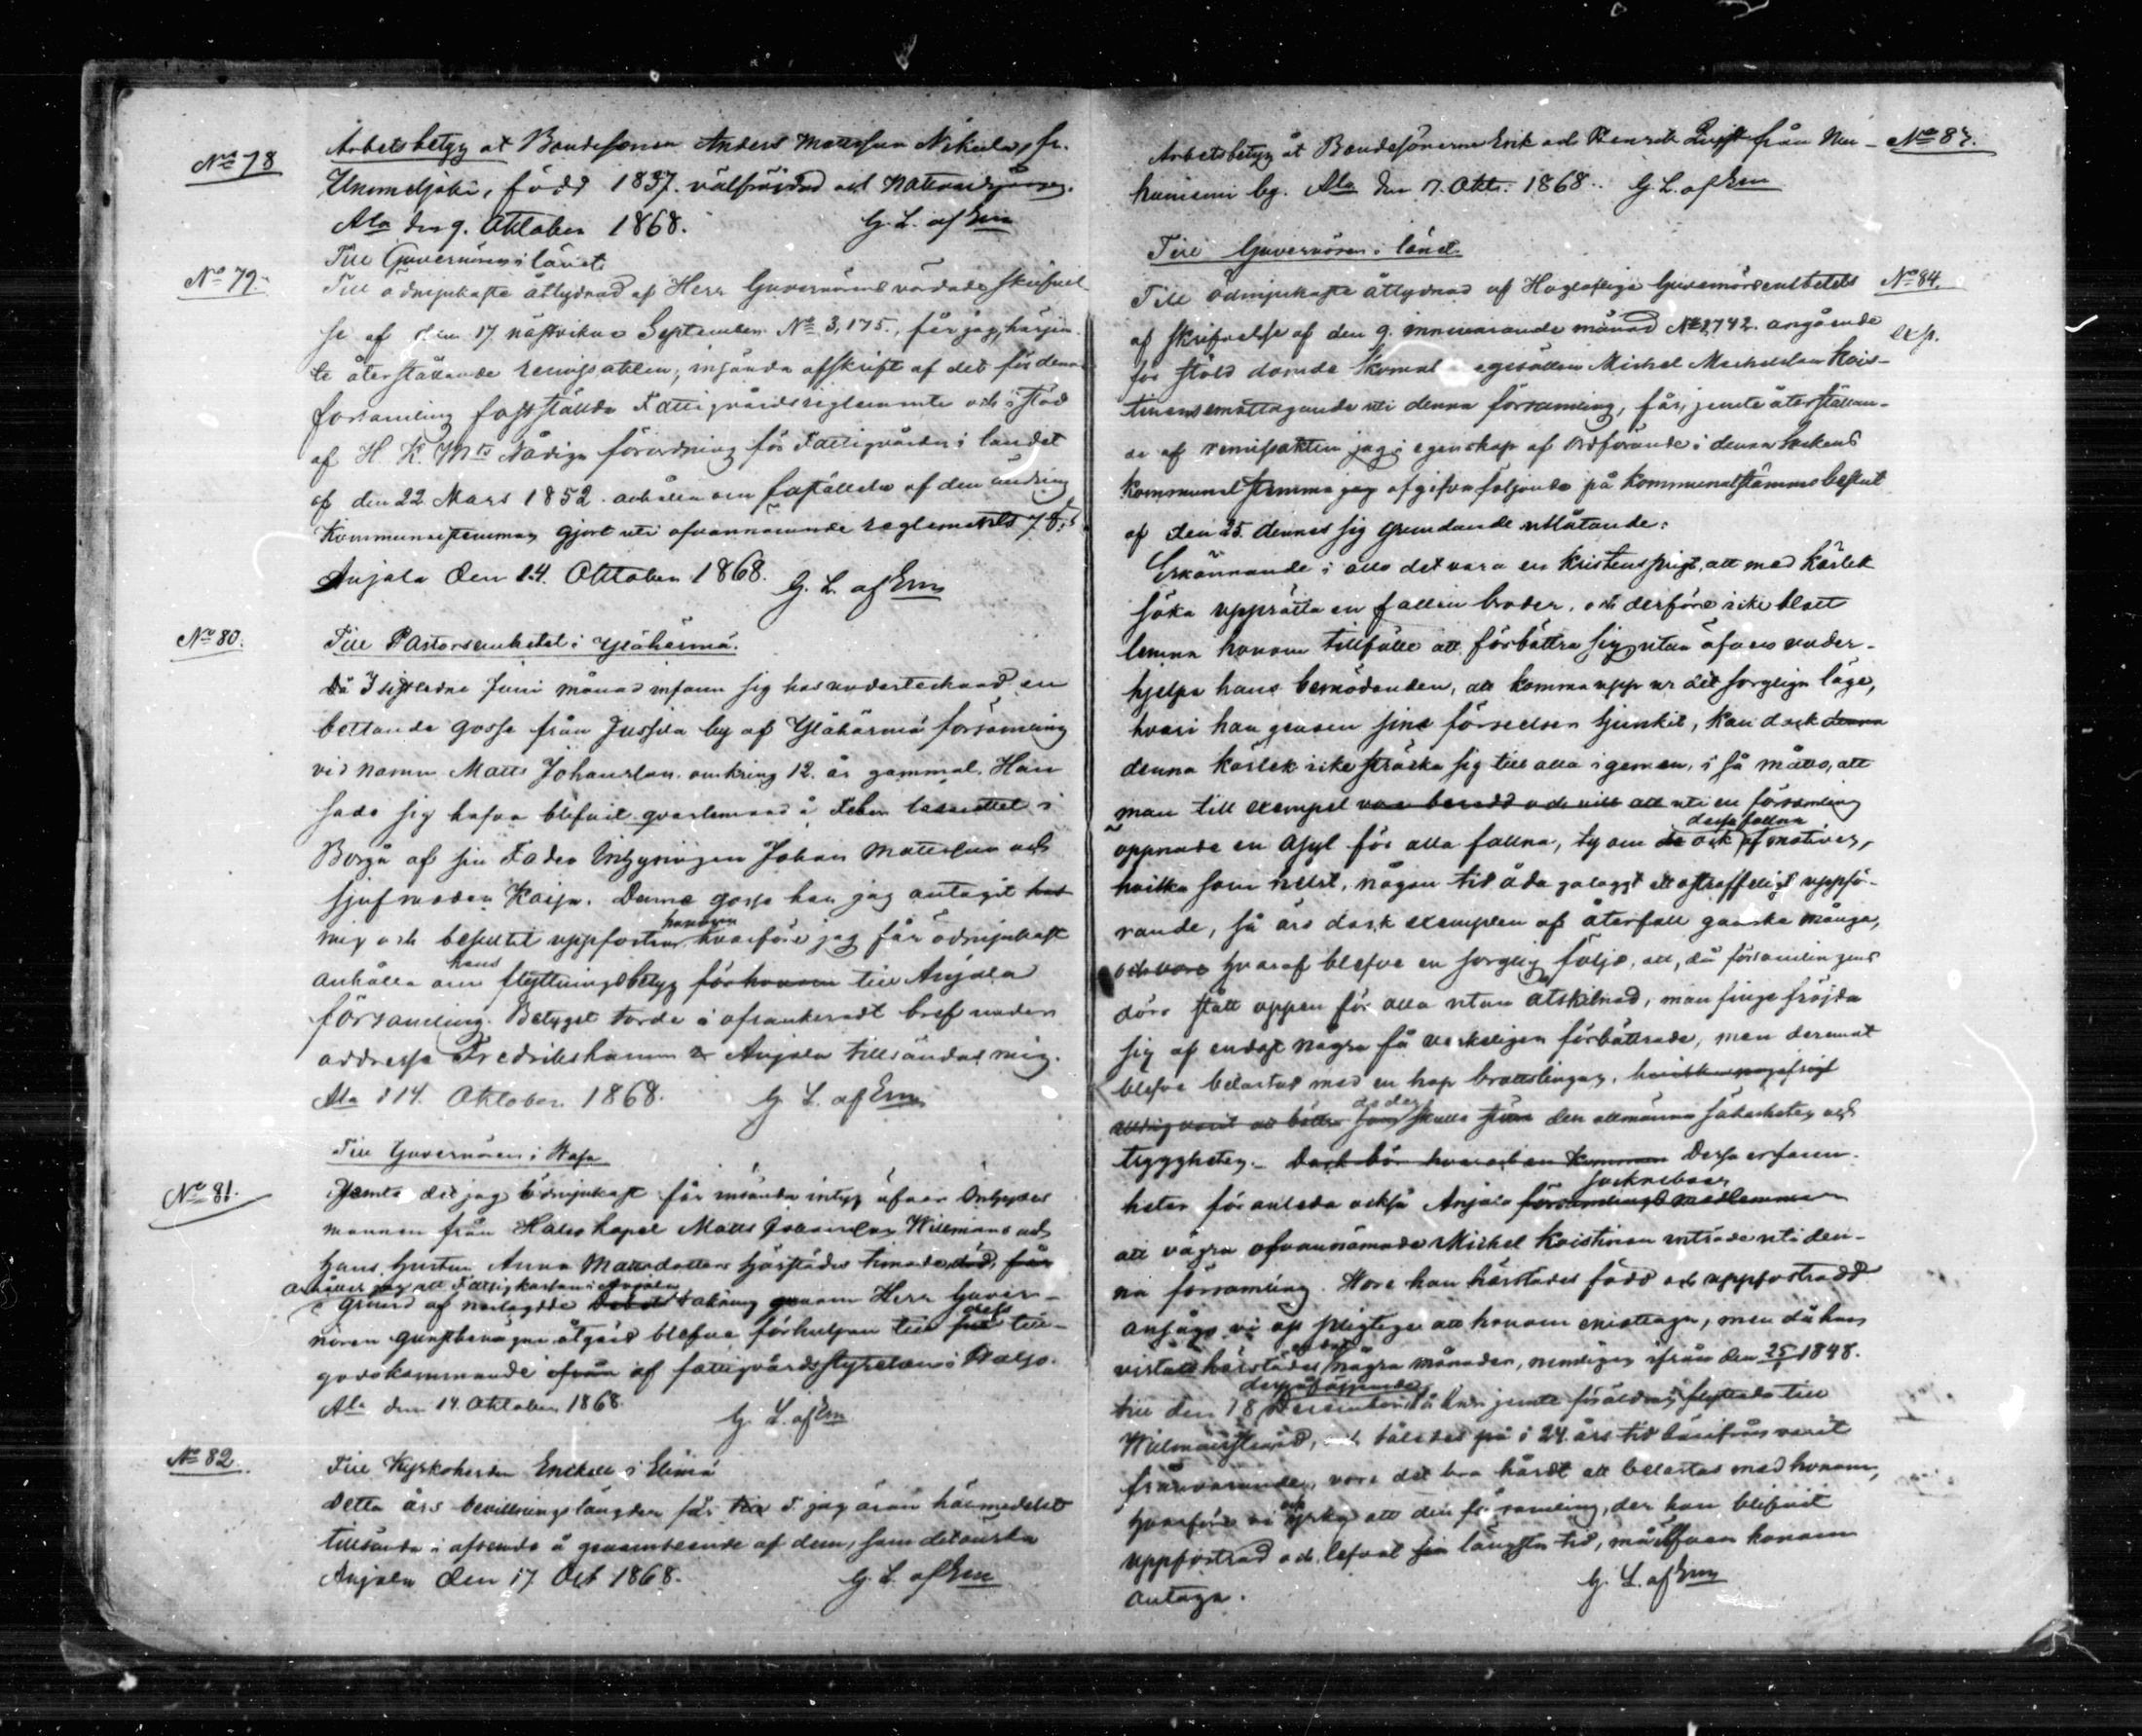 No 78
Arbetsbetyg åt Bondesonen Anders Mattsson Nikula, fr.
Ummeljoki, född 1837. välfrejdad och
Ala den 9. Oktober 1868. G. L. af Ern
No 79.
Till Guvernören i länet.
Till ödmjukaste åtlydnad af Herr Guvernörens vördade skrifvel-
se af den 17 nästvikne September No 3,175., får jag, härjem-
te återställande remissakten, insända afskrift af det för denna
församling fastställda Fattigvårdsreglemente och i stöd
af H. K. Mts Nådiga förordning för Fattigvården i landet
af den 22 Mars 1852. anhålla om faställelse af den ändring
Kommunalstemman gjort uti ofvannämnde reglements 7 §.
Anjala den 14. Oktober 1868. G. L. af Ern
No 80.
Till Pastorsembetet i Ylihärmä.
Då I sistledne Juni månad infann sig hos undertecknad en
bettlande gosse från Jussila by af Ylihärmä församling
vid namn Matts Johansson omkring 12. år gammal. Han
sade sig hafva blifvit qvarlemnad å Feber lasarettet i
Borgå af sin Fader Inhysingen Johan Mattsson och
sjufmoder Kaisa. Denne gosse har jag antagit hos
mig och beslutit uppfostra honom hvarföre jag får ödmjukast
anhålla om hans flyttningsbetyg för honom till Anjala
församling. Betyget torde i ofrankeradt bref under
addresse Fredrikshamn & Anjala tillsändas mig.
Ala d 14. Oktober 1868. G. L. af Ern
Till Guvernören i Wasa
No 81.
Jemte det jag ödmjukast får insända intyg öfver Inhyses
mannen från Halso kapel Matts Johansson Willemans och
hans hustru Anna Mattsdotters härstädes timade död, får
anhåller jag att Fattigkassan i Anjala
å grund af genom Herr Guver-
nören gunstbenägna åtgärd blefve förhulpen till dess till-
godokommande ifrån af fattigvårdsstyrelsen i Halso.
Ala den 14. Oktober 1868. G. L. af Ern
No 82.
Till Kyrkoherden Enckell i Elimä
Detta års bevillningslängder får T. jag äran härmedelst
tillsända i afseende å genomseende af dem, som detönska
Anjala den 17 Oct 1868. G. L. af Ern
Arbetsbetyg åt Bondesönerne Erik och Henrik från Mu- No 83.
hamiemi by. Ala den 7. Okt. 1868. G. L. af Ern
Till Guvernören i länet
Till ödmjukaste åtlydnad af Högloflige Guvernörsembetets No 84.
af skrifvelse af den 9. innevarande månad No 2,742. angående exp.
för stöld dömde Michel Michelsson Kois-
tinens emottagande uti denna församling, får, jemte återställan-
de af remissakten jag i egenskap af Ordförande i denna Sockens
Kommunal stemma jag afgifva följande på Kommunalstämmobeslut
af den 25. dennes sig grundande utlåtande:
Erkännande i allo det vara en Kristens pligt, att med Kärlek
söka upprätta en fallen broder, och derföre icke blott
lemna honom tillfälle att förbättra sig, utan äfven under-
hjelpa hans bemödanden, att komma upp ur det sorgliga läge,
hvari han genom sina förseelser sjunkit, Kan dock denna
denna Kärlek icke sträcka sig till alla i gemen, i så måtto, att
man till exempel vore beredd och vill att uti en församling
öppnade en Asyl för alla fallna, ty om de ock dessa fallna af motiver,
hvilka som helst, någon tid ådagalaggt ett ostraffeligt uppfö-
rande, så äro dock exemplen af återfall ganska många,
och vore hvaraf blefve en sorglig följd, att, då församlingens
dörr stått öppen för alla utan åtskilnad, man finge fröjda
sig af endast några få verkeligen förbättrade, men deremot
blefve belastad med en hop brottslingar,
de der skulle störa den allmänna säkerheten och
tryggheten. Dock bör Dessa erfaren-
heter föranleda också Anjala församlings medlemmar sockneboer
att vägra ofvannämnde Michel Koistinen inträde uti den-
na församling. Wore han härstädes född och uppfostradd
ansågo vi oss pligtige att honom emottaga, men då han
vistatts härstädes endast några månader, nemligen ifrån den 25/ 1848.
till den 18 December derpåföljande då han jemte föräldrar flyttade till
Willmanstrand, och således på i 24. års tid härifrån varit
frånvarande, vore det bra hårdt att belastas med honom,
hvarföre vi yrka att den församling, der han blifvit
uppfostrad och lefvat sin längsta tid, måtte honom
antaga. G. L. af Ern